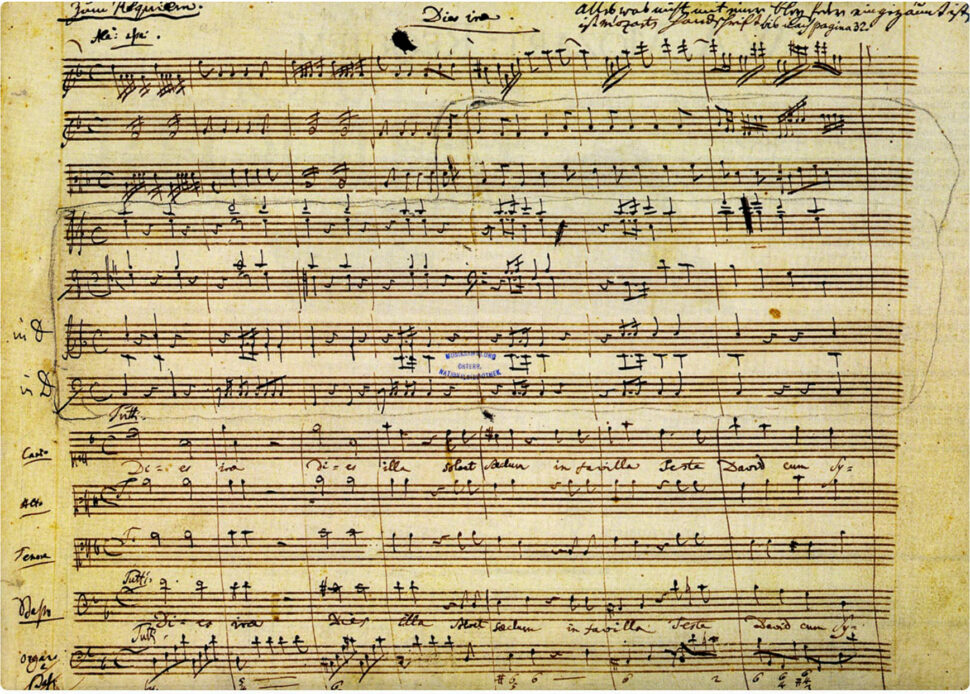 Zum Requiem.
Dies iræ
Alles was nicht mit einer bley feder eingezäunt ist
ist Mozarts Handschrift bis pagina 32.
All: assai.
in D
MUSIKSAMMLUNG
ÖSTERR.
NATIONALBIBLIOTHEK
in D
Tutti.
Canto
Di=es iræ di=es illa solvet Sæclum in favilla Teste David cum Sy=
Alto
Tenore
Tutti.
Basso
Di=es iræ Dies illa Solvet Sæclum in favilla Teste David cum Sy=
Tutti
organo